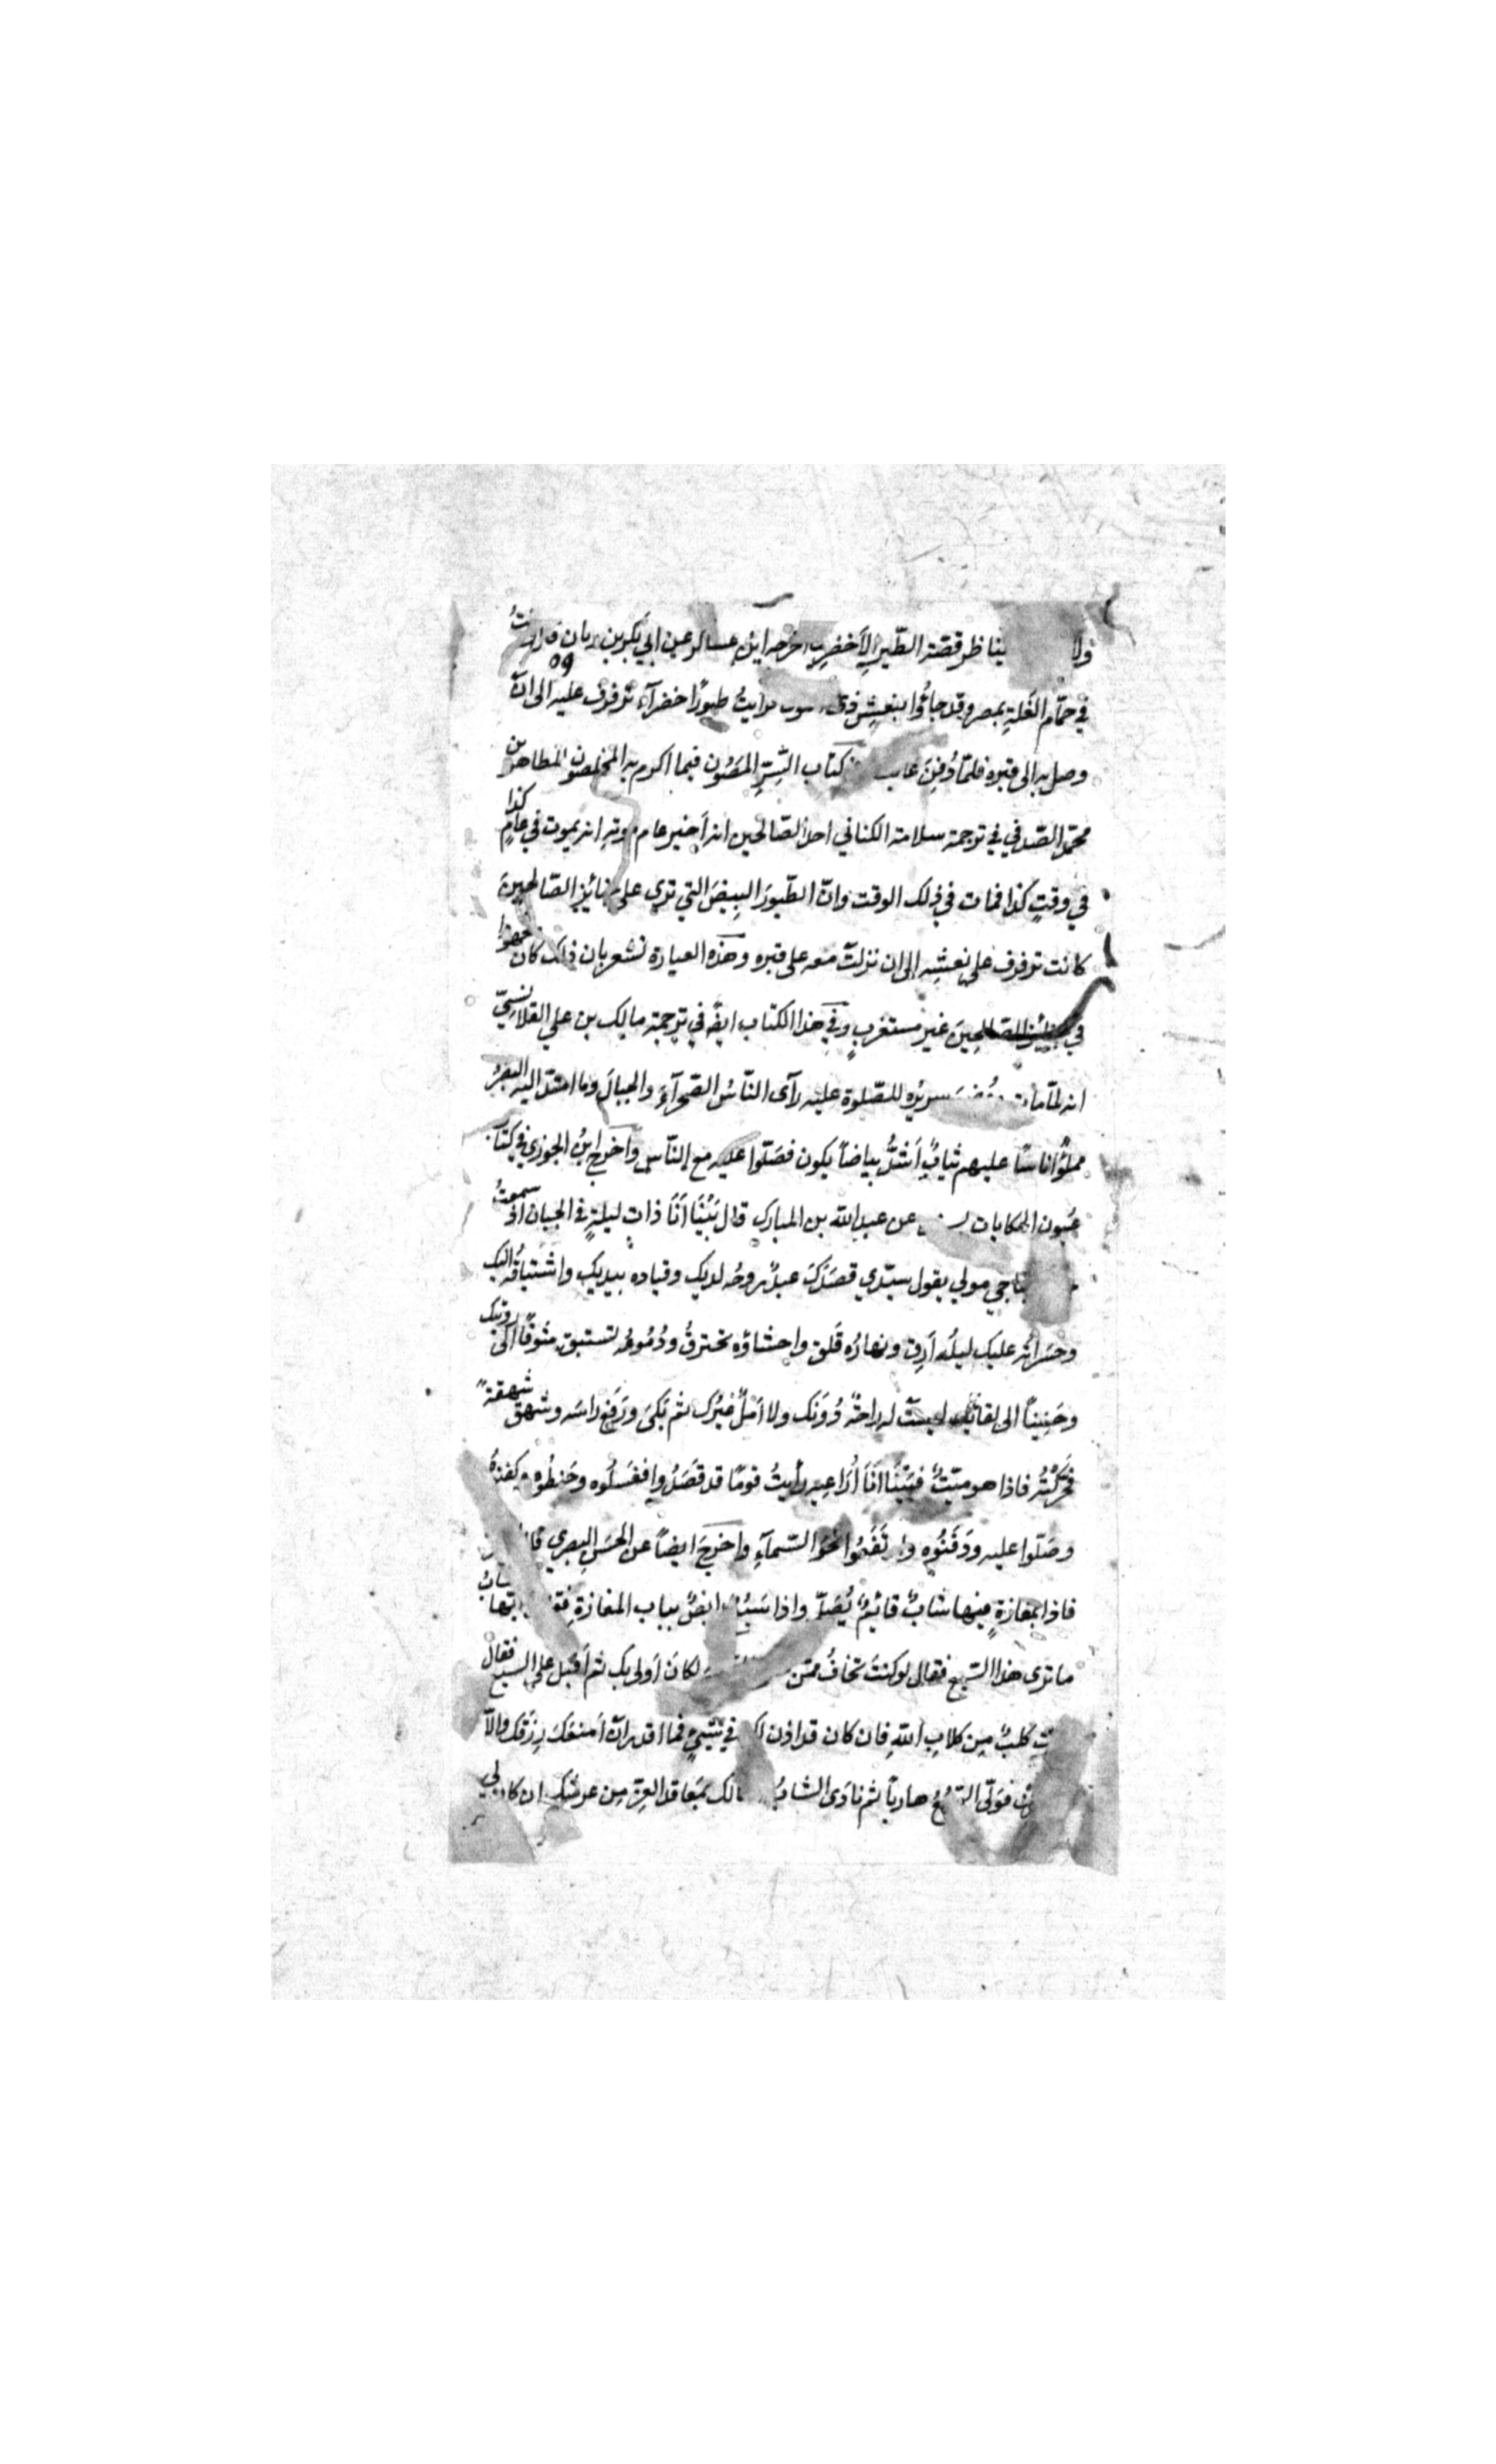 ولا ينا ظر قصّة الطّير الأخضر اخرجه ابن عساكر عن ابي بكر بن ريان قال كنتُ
في حمّام الغَلّةِ بمصر وقد جاؤا بنعشِ ذى رايتُ طيورًا خضرآء ترفرف عليه الى انْ
وصل به الى قبره فلمّا دُفِنَ غابت كتاب السِّرِّ المَصُون فيما اكرم به المخلصون للطاهر بن
محمّد الصّدفي في ترجمة سلامة الكناني احد الصّالحين انه اَخبر عام موته انه يموت في عامِ كذا
في وقتِ كذا فمات في ذلك الوقت وانّ الطّيورَ البِيضَ التي ترى على جنائزِ الصّالحينَ
كانت ترفرف على نعشِه الى ان نزلتْ معه على قبره وهذه العبارة تشعر بان ذلك كان حضوا
في جنائز الصّالحِينَ غير مستغربٍ وفي هذا الكتاب ايضًا في ترجمة مالك بن علي القلانسيّ
انه لمّا مات وُضِعَ سريرُه للصّلوة عليه رآى النّاسُ الصّحرآءَ والجبالَ وما امتدّ اليه البصرُ
مملوًّا اناسًا عليهم ثيابٌ اَشدُّ بياضًا يكون فصَلّوا عليه مع النّاس واَخرج ابنُ الجوزي في كتاب
عُيون الحكايات عن عبد الله بن المبارك قال بَيْنَا اَنَا ذاتِ ليلةٍ في الجبان اذ سمعتُ
يناجي مولي يقول سيّدي قصَدَكَ عبدٌ روحُه لديك وقياده بيديك واشتياقُه اليك
وحَسَراتُه عليك ليلُه اَرِق ونهارُه قَلق واحشاؤه تحترقُ ودُمُوعُه تستبق شوقًا الى رويتك
وحَنِينًا الى لقائك ليستْ له راحةٌ دُونَك ولا اَملٌ غيرُك ثم بَكىَ ورَفع راسَه وشهق شهقةً
فحرّكتُه فاذا هو ميّتٌ فبَيْنَا انَا اُرَاعِيه رأيتُ قومًا قد قصَدُوا فغَسَلُوه وحَنطُوه وكفنوهُ
وصَلّوا عليه ودَفَنُوه وارتفَعُوا نحوَ السّمآءِ واخرجَ ايضًا عن الحسَنِ البصري قال
فاذا بمغازةٍ فيها شابٌّ قائِمٌ يُصَلّي واذا سَبُعٌ رابضٌ بباب المغازةِ فقلت ايّها الشابُّ
ما ترى هذا السّبع فقال لو كنتَ تخافُ ممّن لكانَ اَولى بك ثم اَقبل على السبع فقال
انتَ كلبٌ مِن كلابِ اللهِ فان كان قد اذن لك في شَيءٍ فما اقدر انْ اَمنعَكَ رِزقَك والّا
فوَلّى السّبُعُ هاربًا ثم نادَى الشابُّ اسالك بمَعاقد العِزّ مِن عرشِك ان كان لي